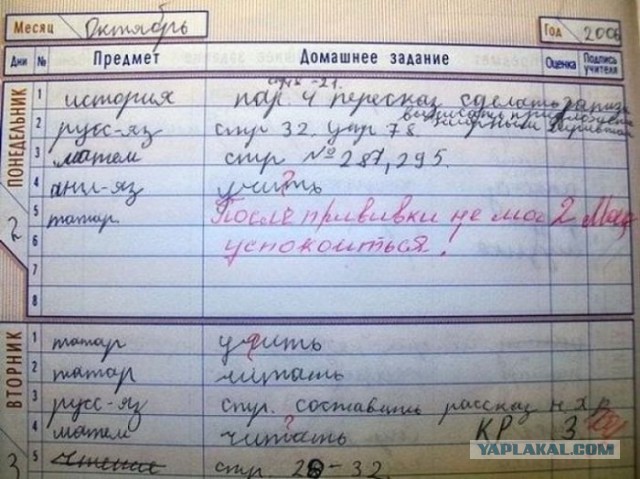 Месяц Октябрь Год 2006
Дни № Предмет Домашнее задание Оценка Подпись учителя
ПОНЕДЕЛЬНИК 2
стр -21.
1 история пар. 4 пересказ сделать
2 русс-яз стр 32. упр 78
3 матем стр № 287, 295.
4 англ-яз учить
?
5 татар. После прививки не мог 2
6 успокоиться!
7
8
ВТОРНИК 3
1 татар учить
2 татар читать
3 русс-яз стр. составить рассказ
?
4 матем читать КР 3
5 чтение стр. 28-32.
YAPLAKAL.COM